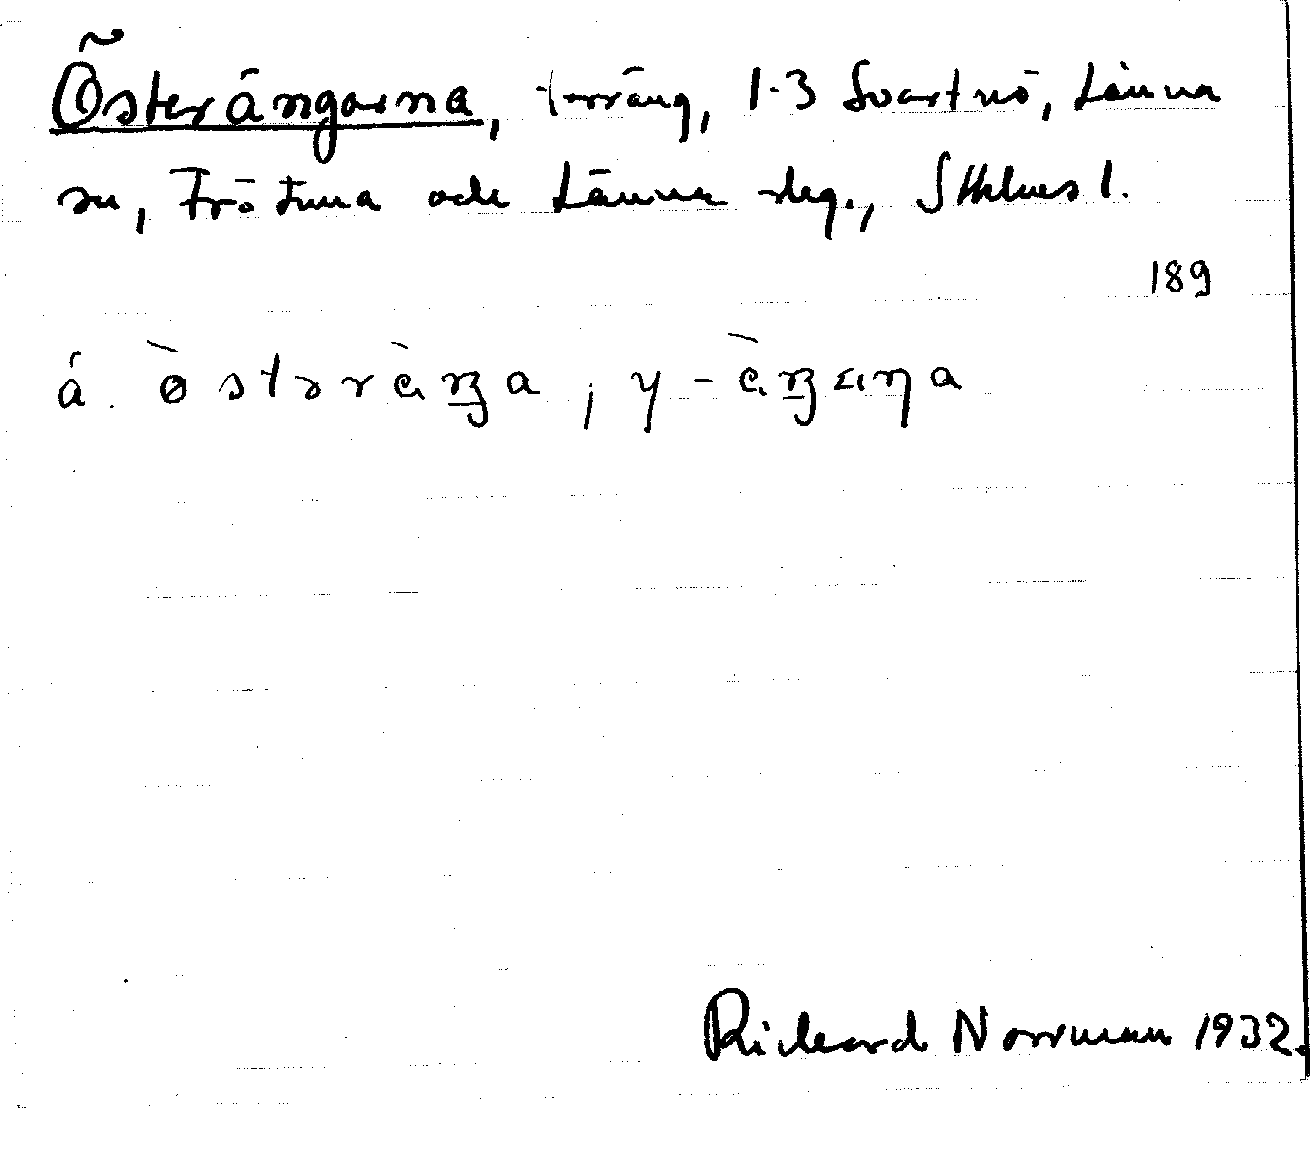 Österängarna, torräng, 1-3 Svartnö, Länna
sn, Frötuna och Länna skg., Sthlms l.
189
á. ø̀stərὲŋa, y -ὲŋaɳa
Rickard Norrman 1932.